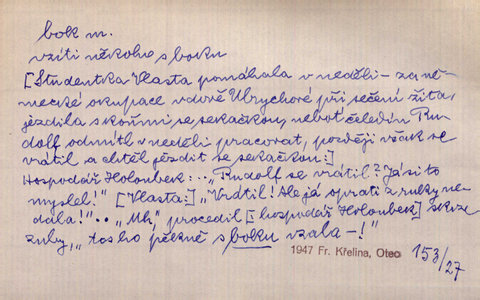 bok m.
vzíti někoho s boku
[Studentka Vlasta pomáhala v neděli – za ně-
mecké okupace vdově Ulrychové při sečení žita,
jezdila s koňmi se sekačkou, neboť čeledín Ru-
dolf odmítl v neděli pracovat, později však se
vrátil a chtěl jezdit se sekačkou:]
Hospodář Holoubek: .., „Rudolf se vrátil? Já si to
myslel!" [Vlasta:] „Vrátil! Ale já oprati z ruky ne-
dala!".. „Uh," procedil [hospodář Holoubek] skrze
zuby, „tos ho pěkně s boku vzala –!"
1947 Fr. Křelina, Otec 153/27